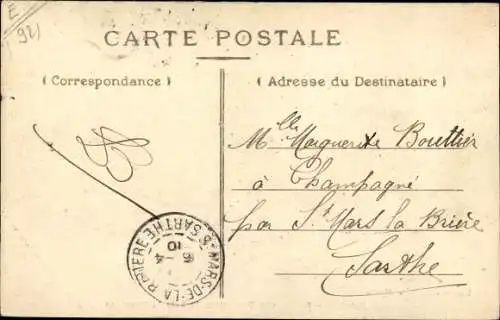 E
(92)
CARTE POSTALE
(Correspondance)
(Adresse du Destinataire)
Mlle Marguerite Bouttier
à Champagné
par St Mars la Brière
Sarthe
ST MARS-DE-LA BRIERE SARTHE
6 - 4
10